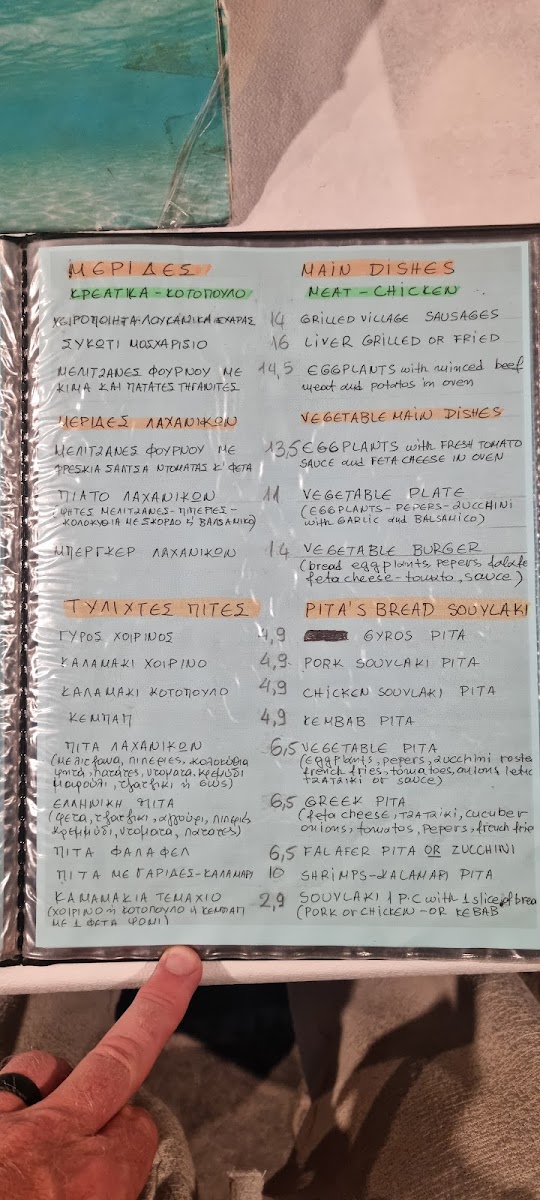 ΜΕΡΙΔΕΣ
MAIN DISHES
ΚΡΕΑΤΙΚΑ-ΚΟΤΟΠΟΥΛΟ
MEAT-CHICKEN
ΧΕΙΡΟΠΟΙΗΤΑ ΛΟΥΚΑΝΙΚΑ ΣΧΑΡΑΣ 14 GRILLED VILLAGE SAUSAGES
ΣΥΚΩΤΙ ΜΟΣΧΑΡΙΣΙΟ 16 LIVER GRILLED OR FRIED
ΜΕΛΙΤΖΑΝΕΣ ΦΟΥΡΝΟΥ ΜΕ 14,5 EGGPLANTS with minced beef
ΚΙΜΑ ΚΑΙ ΠΑΤΑΤΕΣ ΤΗΓΑΝΙΤΕΣ meat and potatos in oven
ΜΕΡΙΔΕΣ ΛΑΧΑΝΙΚΩΝ VEGETABLE MAIN DISHES
ΜΕΛΙΤΖΑΝΕΣ ΦΟΥΡΝΟΥ ΜΕ 13,5 EGGPLANTS with FRESH TOMATO
ΦΡΕΣΚΙΑ ΣΑΛΤΣΑ ΝΤΟΜΑΤΑΣ Κ' ΦΕΤΑ SAUCE and FETA CHEESE IN OVEN
ΠΙΑΤΟ ΛΑΧΑΝΙΚΩΝ 11 VEGETABLE PLATE
(ΨΗΤΕΣ ΜΕΛΙΤΖΑΝΕΣ-ΠΙΠΕΡΙΕΣ- (EGGPLANTS-PEPERS-ZUCCHINI
ΚΟΛΟΚΥΘΙΑ ΜΕ ΣΚΟΡΔΟ & ΒΑΛΣΑΜΙΚΟ) with GARLIC and BALSAMICO)
ΜΠΕΡΓΚΕΡ ΛΑΧΑΝΙΚΩΝ 14 VEGETABLE BURGER
(bread eggplants, pepers, falafe
feta cheese-tomato, sauce)
ΤΥΛΙΧΤΕΣ ΠΙΤΕΣ PITA'S BREAD SOUVLAKI
ΓΥΡΟΣ ΧΟΙΡΙΝΟΣ 4,9 GYROS PITA
ΚΑΛΑΜΑΚΙ ΧΟΙΡΙΝΟ 4,9 PORK SOUVLAKI PITA
ΚΑΛΑΜΑΚΙ ΚΟΤΟΠΟΥΛΟ 4,9 CHICKEN SOUVLAKI PITA
ΚΕΜΠΑΠ 4,9 KEMBAB PITA
ΠΙΤΑ ΛΑΧΑΝΙΚΩΝ 6,5 VEGETABLE PITA
(μελιτζανα, πιπεριες, κολοκυθια (eggplants, pepers, zucchini roste
ψητα, πατατες, ντοματα, κρεμυδι french fries, tomatoes, onions, letuc
μαρουλι, τζατζικι ή σως) TZATZIKI or sauce)
ΕΛΛΗΝΙΚΗ ΠΙΤΑ 6,5 GREEK PITA
(φετα, τζατζικι, αγγουρι, πιπεριες (feta cheese, TZATZIKI, cucuber
κρεμυδι, ντοματα, πατατες) onions, tomatos, pepers, french frie
ΠΙΤΑ ΦΑΛΑΦΕΛ 6,5 FALAFER PITA OR ZUCCHINI
ΠΙΤΑ ΜΕ ΓΑΡΙΔΕΣ-ΚΑΛΑΜΑΡΙ 10 SHRIMPS-KALAMARI PITA
ΚΑΜΑΜΑΚΙΑ ΤΕΜΑΧΙΟ 2,9 SOUVLAKI 1 P.C with 1 slice of brea
(ΧΟΙΡΙΝΟ ή ΚΟΤΟΠΟΥΛΟ ή ΚΕΜΠΑΠ (PORK or CHICKEN-OR KEBAB
ΜΕ 1 ΦΕΤΑ ΨΩΜΙ)